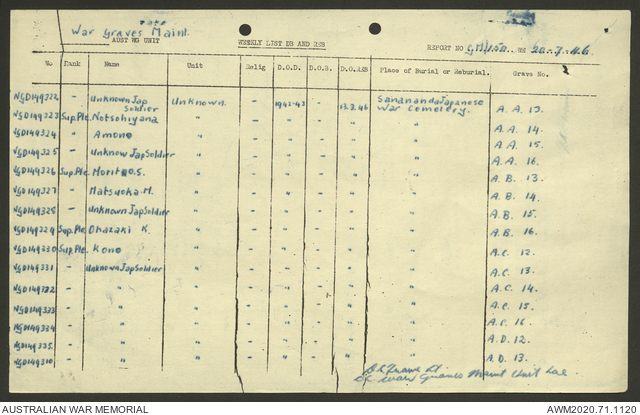 War Graves Maint.
AUST WG UNIT WEEKLY LIST DB AND REB REPORT NO GM/150 ON 20.7.46
No Rank Name Unit Relig D.O.D. D.O.B. D.O.REB Place of Burial or Reburial. Grave No.
NGD149322 - Unknown Jap Soldier Unknown. - 1942-43 - 13.3.46 Sanananda Japanese War Cemetery. A.A. 13.
NGD149323 Sup.Pte. Notsohiyana " - " - " " A.A. 14.
NGD149324 - Amono " - " - " " A.A. 15.
NGD149325 - Unknow Jap Soldier " - " - " " A.A. 16.
NGD149326 Sup.Pte. S. " - " - " " A.B. 13.
NGD149327 - Matsuoka M. " - " - " " A.B. 14.
- Unknown Jap Soldier " - " - " " A.B. 15.
NGD149329 Sup.Pte. Ohazaki K. " - " - " " A.B. 16.
NGD149330 Sup.Pte. Kono " - " - " " A.C. 12.
NGD149331 - Unknown Jap Soldier " - " - " " A.C. 13.
NGD149332 - " " - " - " " A.C. 14.
- " " - " - " " A.C. 15.
NGD149334 - " " - " - " " A.C. 16
- " " - " - " " A.D. 12.
- " " - " - " " A.D. 13.
Lt.
Graves Maint Unit Lae.
AUSTRALIAN WAR MEMORIAL AWM2020.71.1120